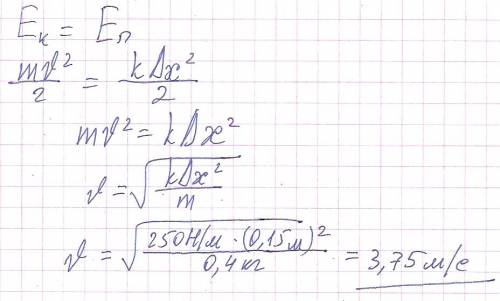 Eк = Eп
mv²/2 = kΔx²/2
mv² = kΔx²
v = √(kΔx²/m)
v = √(250Н/м · (0,15м)²/0,4кг) = 3,75м/с